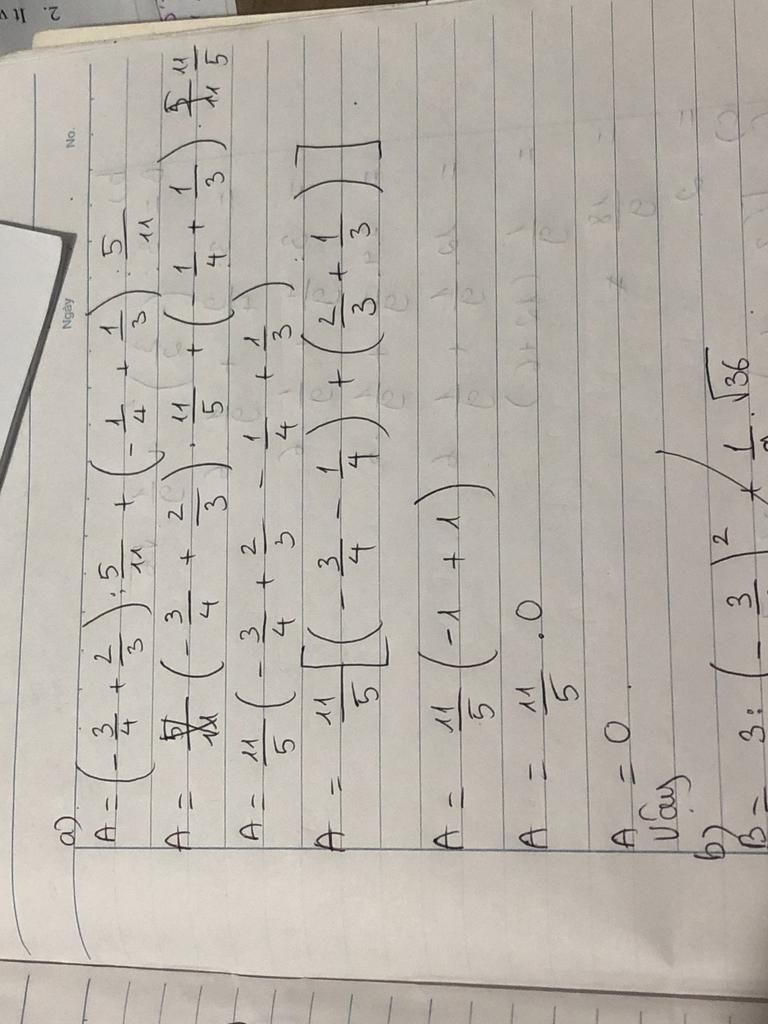 2. It
Ngày
No.
a)
A = (-3/4 + 2/3) : 5/11 + (-1/4 + 1/3) : 5/11
A = (-3/4 + 2/3) . 11/5 + (-1/4 + 1/3) . 11/5
A = 11/5 (-3/4 + 2/3 - 1/4 + 1/3)
A = 11/5 [(-3/4 - 1/4) + (2/3 + 1/3)]
A = 11/5 (-1 + 1)
A = 11/5 . 0
A = 0.
Vậy
b)
B = 3 : (-3/ )² + 1/ . √36